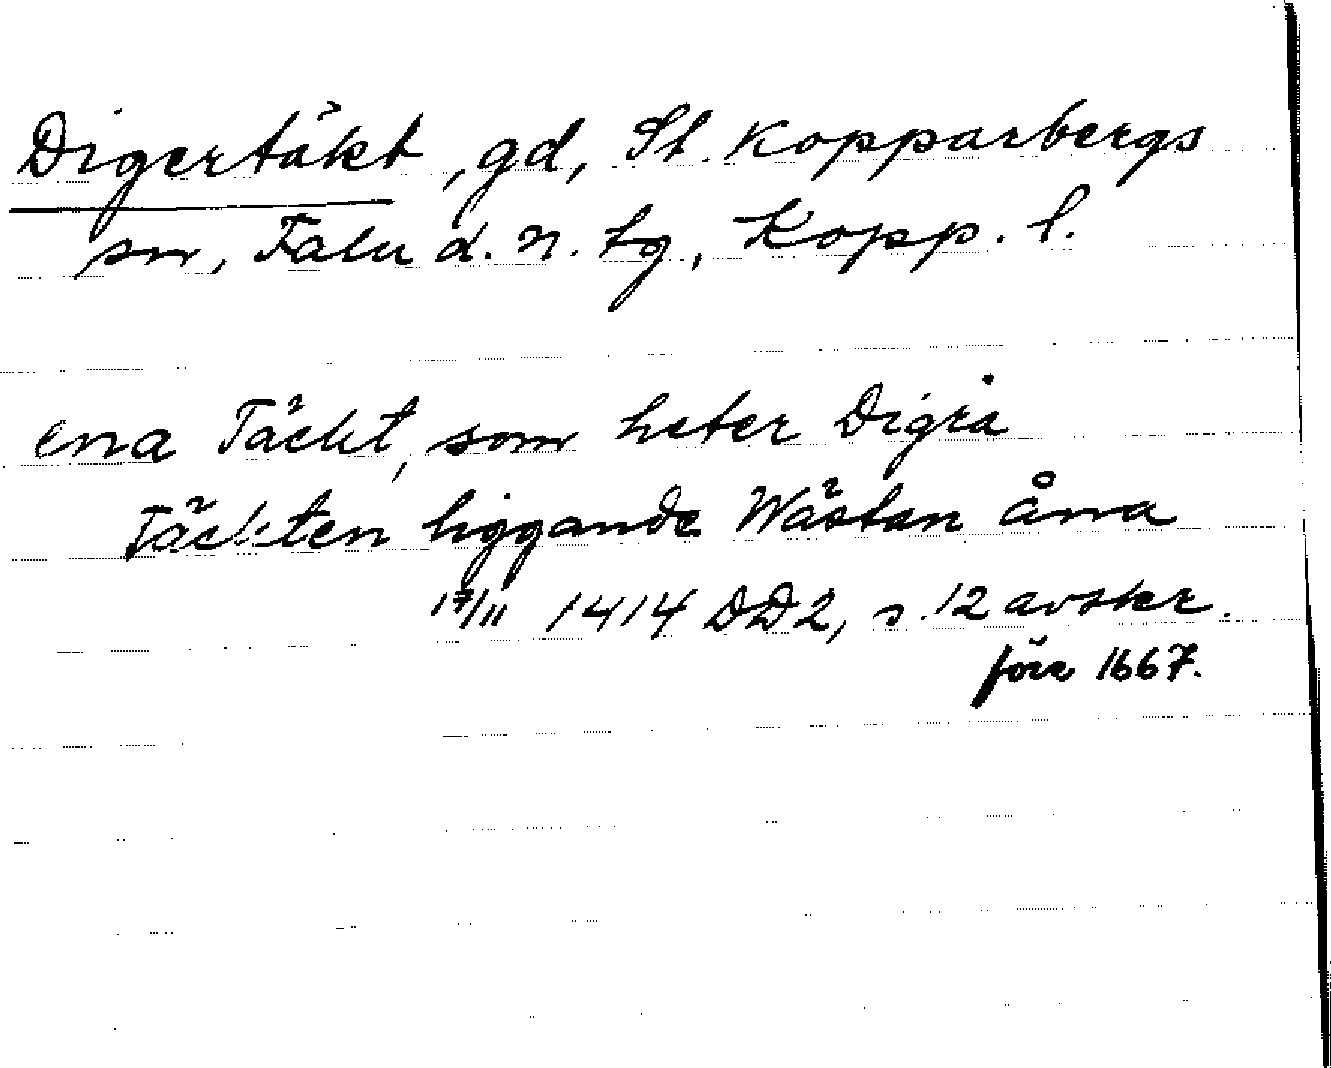 Digertäkt, gd, St. Kopparbergs
sn, Falu d. n. tg, Kopp. l.
ena Täckt, som heter Digra
Täckten liggande Wästan åna
17/11 1414 DD2, s. 12 avskr.
före 1667.